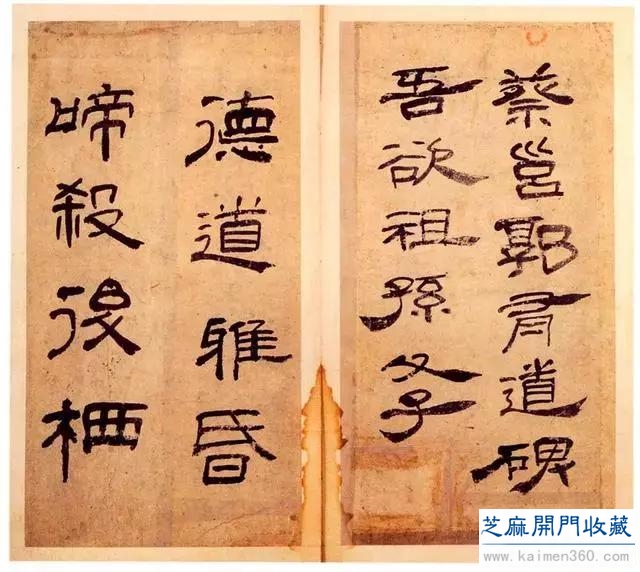 蔡邕郭有道碑
吾欲祖孫父子
德道雅昏
啼殺後栖
芝麻開門收藏
www.kaimen360.com